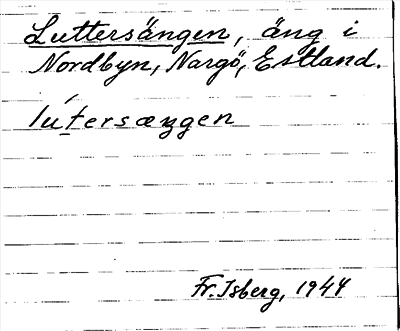 Luttersängen, äng i
Nordbyn, Nargö, Estland.
lútersæŋgen
Fr. Isberg, 1944